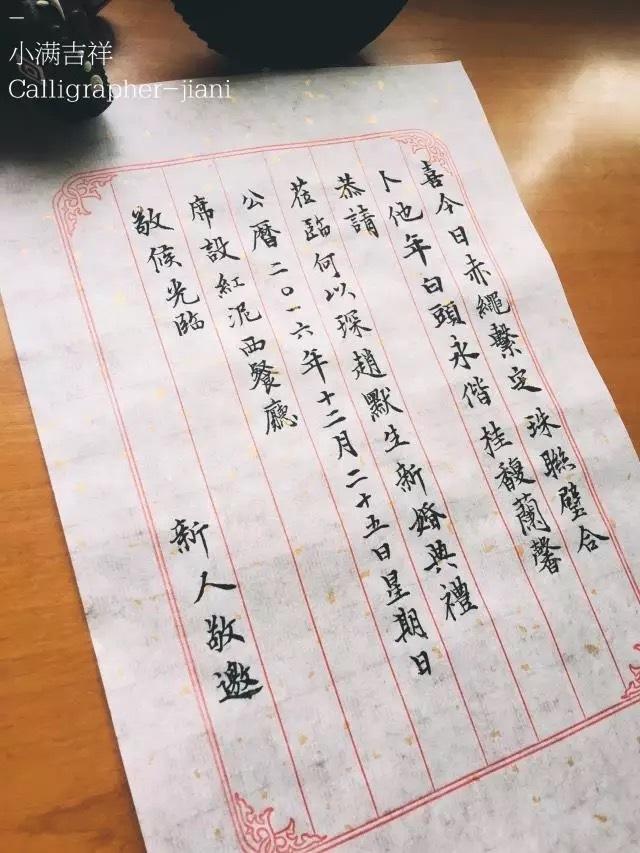 小满吉祥
Calligrapher-jiani
喜今日赤繩繫定 珠聯璧合
卜他年白頭永偕 桂馥蘭馨
恭請
莅臨何以琛趙默生新婚典禮
公曆二〇一六年十二月二十五日星期日
席設紅泥西餐廳
敬候光臨
新人敬邀